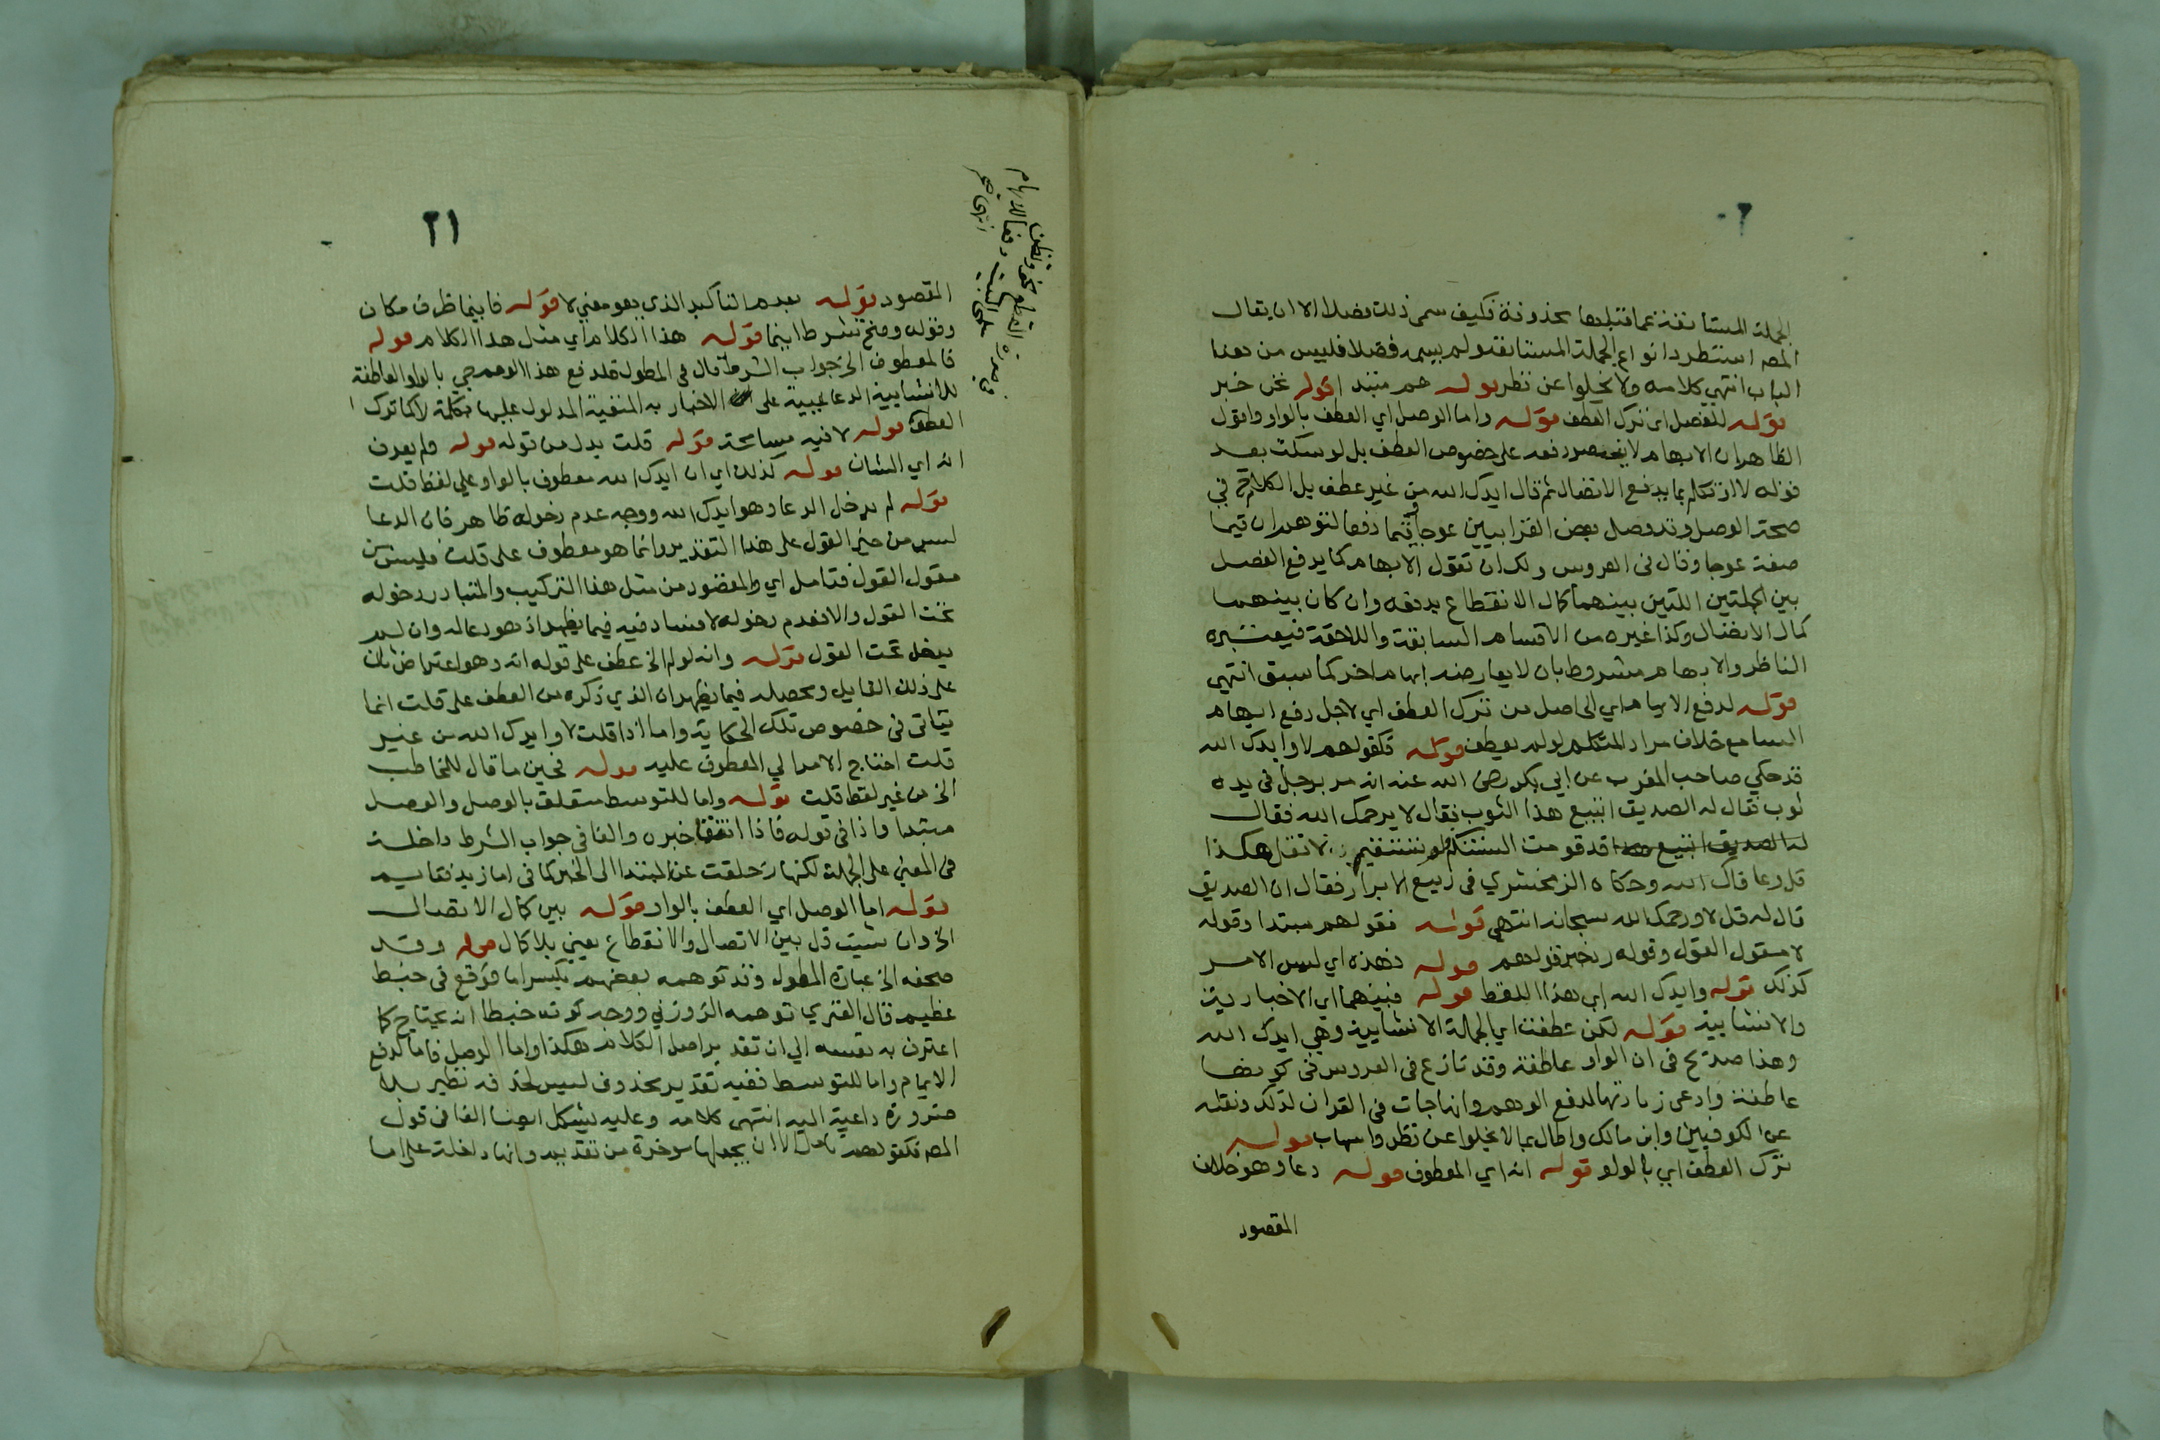 ٢٠
الجملة المستانفة عما قبلها محذوفة فكيف سمى ذلك فصلا الا ان يقال
المصـ استطرد انواع الجملة المستانفة ولم يسمه فصلا فليس من هذا
الباب انتهى كلامه ولا يخلوا عن نظر قوله هم مبتدا قوله عن خبر
قوله للفصل اى ترك العطف قوله واما الوصل اي العطف بالواو واقول
الظاهر ان الابهام لا ينحصر دفعه على خصوص العطف بل لو سكت بعد
قوله لا او تكلم بما يدفع الاتصال ثم قال ايدك الله من غير عطف بل الكلام ثم في
صحة الوصل وقد وصل بعض القرا بين عوجا وقيما دفعا لتوهم ان قيما
صفة عوجا وقال فى العروس ولك ان تقول الابهام كما يدفع الفصل
بين الجملتين اللتين بينهما كمال الانقطاع يدفعه وان كان بينهما
كمال الاتصال وكذا غيره من الاقسام السابقة واللاحقة فيعتبره
الناظر والابهام مشروط بان لا يعارضه ابهام اخر كما سبق انتهى
قوله لدفع الايهام اي الحاصل من ترك العطف اي لاجل دفع ايهام
السامع خلاف مراد المتكلم لو لم يعطف قوله فكقولهم لا وايدك الله
قد حكي صاحب المغرب عن ابي بكر رضى الله عنه انه مر برجل فى يده
ثوب فقال له الصديق اتبيع هذا الثوب فقال لا يرحمك الله فقال
له الصديق اتبيع هذا قد قومت السنتكم لو تستقيم لا تقل هكذا
قل وعافاك الله وحكاه الزمخشري فى ربيع الابرار فقال ان الصديق
قال له قل لا ورحمك الله سبحانه انتهى قوله فقولهم مبتدا وقوله
لا مقول القول وقوله رد خبر قولهم قوله فهذه اي ليس الامر
كذلك قوله وايدك الله اي هذا اللفظ قوله فبينهما اي الاخبارية
والانشاية قوله لكن عطفت اي الجملة الانشايية وهي ايدك الله
وهذا صريح فى ان الواو عاطفة وقد نازع فى العروس فى كونها
عاطفة وادعى زيادتها لدفع الوهم وانها جات فى القران لذلك ونقله
عن الكوفيين وابن مالك واطال بما لا يخلوا عن نظر واسهاب قوله
ترك العطف اي بالواو قوله انه اي المعطوف قوله دعا وهو خلاف
المقصود
٢١
المقصود قوله بعدم التاكيد الذي هو معنى لا قوله فاينما ظرف مكان
وقوله وضح شرط اينما قوله هذا الكلام اي مثل هذا الكلام قوله
فالمعطوف الخ جواب الشرط قال فى المطول فلدفع هذا الوهم جي بالواو العاطفة
للانشايية الدعاييية على الاخبارية المنفية المدلول عليها بكلمة لا كما ترك
العطف قوله لا فيه مسامحة قوله قلت بدل من قوله قوله ولم يعرف
انه اي الشان قوله كذلك اي ان ايدك الله معطوف بالواو على لفظ قلت
قوله لم يدخل الدعا وهو ايدك الله ووجه عدم دخوله ظاهر فان الدعا
ليس من حيز القول على هذا التقدير وانما هو معطوف على قلت فليس من
مقول القول فتامل اي والمقصود من مثل هذا التركيب والمتبادر دخوله
تحت القول والا فعدم دخوله لا فساد فيه فيما يظهر اذ هو دعا له وان لم
يدخل تحت القول قوله وانه لو لم الخ عطف على قوله انه وهو اعتراض ثان
على ذلك القايل ومحصله فيما يظهر ان الذي ذكره من العطف على قلت انما
يتاتى فى خصوص تلك الحكاية واما اذا قلت لا وايدك الله من غير
قلت احتاج الامر الي المعطوف عليه قوله فحين ما قال للمخاطب
الخ من غير لفظ قلت قوله واما للتوسط متعلق بالوصل والوصل
مبتدا واذا فى قوله فاذا اتفقتا خبره والفا فى جواب الشرط داخلة
فى المعنى على الجملة لكنها زحلقت عن المبتدا الى الخبر كما فى اما زيد فقايم
قوله اما الوصل اي العطف بالواو قوله بين كمال الاتصال
الخ وان شيت قل بين الاتصال والانقطاع يعني بلا كمال قوله وقد
صحفه الخ عبارة المطول وقد توهمه بعضهم بكسر اما فوقع فى خبط
عظيم قال الفنري توهمه الزوزني ووجه كونه خبطا انه يحتاج كما
اعترف به نفسه الى ان تقدير اصل الكلام هكذا واما الوصل فاما لدفع
الايهام واما للتوسط ففيه تقدير محذوف ليس لحذفه نظير بلا
ضرورة داعية اليه انتهى كلامه وعليه يشكل ايضا الفا فى قول
المصـ فكقولهم تامل الا ان يجعلها موخرة من تقديم وانها داخلة على اما